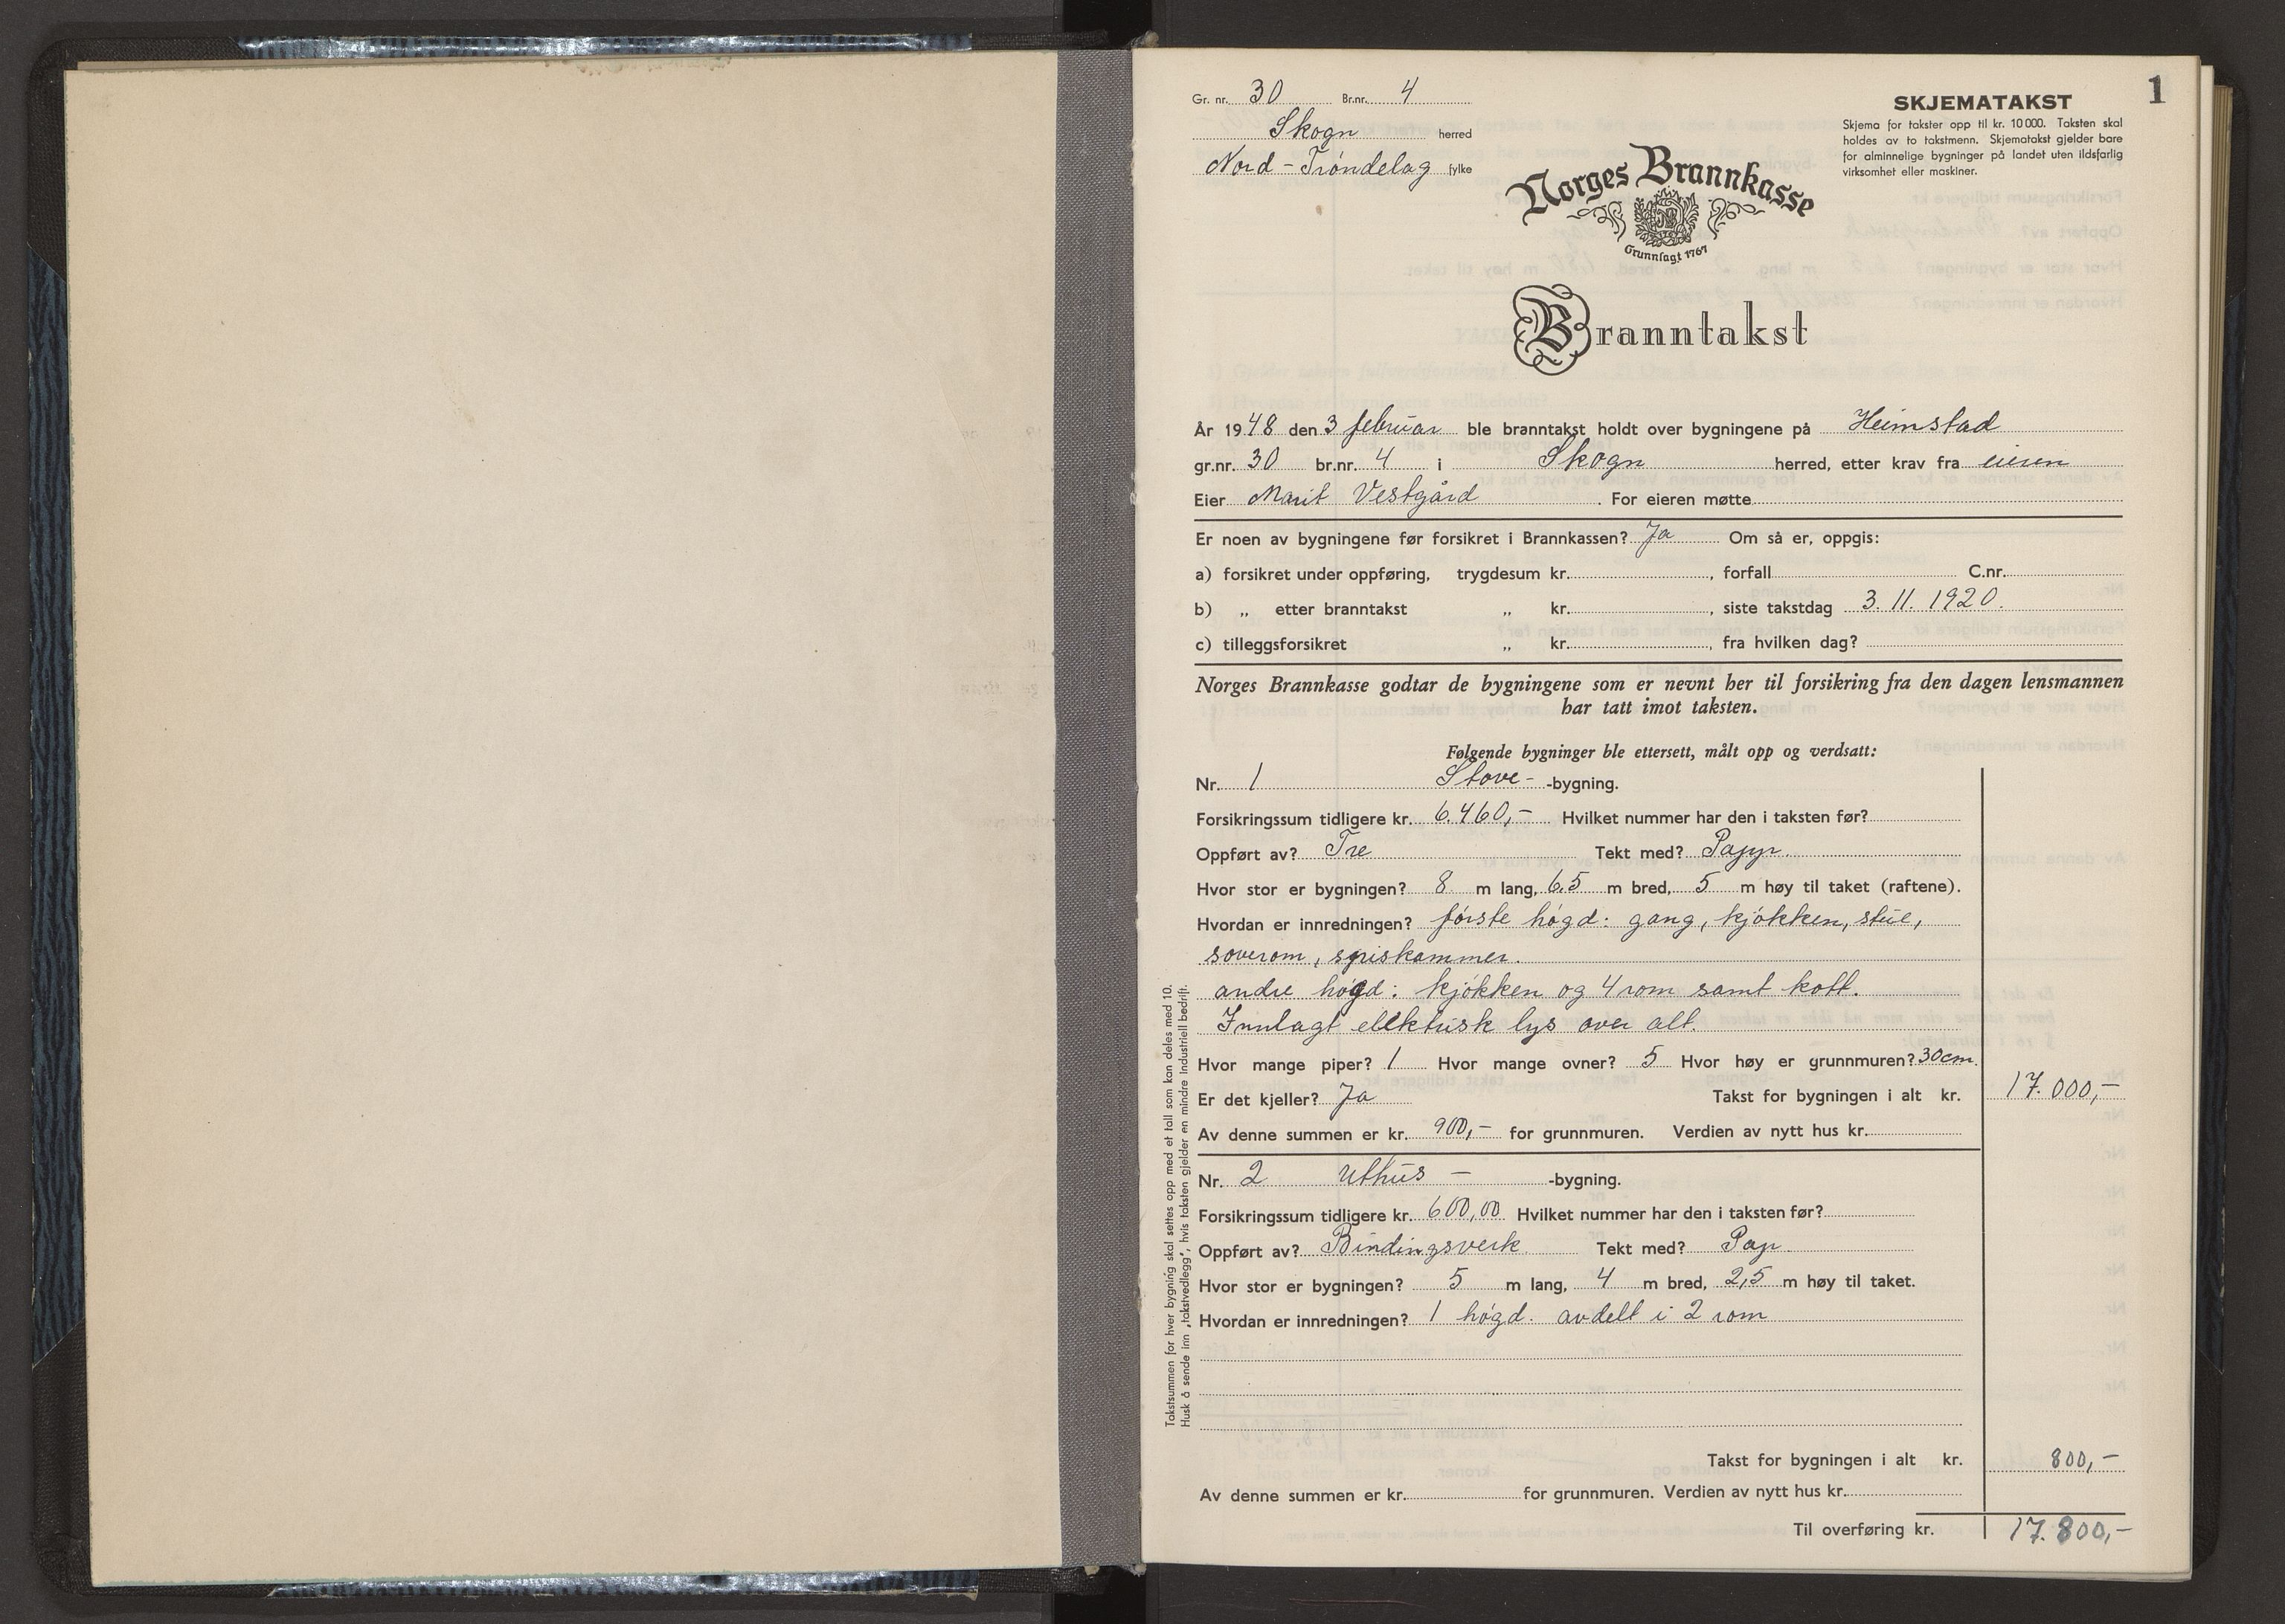 1
Gr. nr. 30 Br.nr. 4
Skogn herred
Nord-Tröndelag fylke
SKJEMATAKST
Skjema for takster opp til kr. 10 000. Taksten skal
holdes av to takstmenn. Skjematakst gjelder bare
for alminnelige bygninger på landet uten ildsfarlig
virksomhet eller maskiner.
Norges Brannkasse
Grunnlagt 1767
Branntakst
År 1948 den 3 februar ble branntakst holdt over bygningene på Heimstad
gr.nr. 30 br.nr. 4 i Skogn herred, etter krav fra eieren
Eier Marit Vestgård. For eieren møtte
Er noen av bygningene før forsikret i Brannkassen? Ja Om så er, oppgis:
a) forsikret under oppføring, trygdesum kr. , forfall C.nr.
b) „ etter branntakst „ kr. , siste takstdag 3. 11. 1920.
c) tilleggsforsikret „ kr. , fra hvilken dag?
Norges Brannkasse godtar de bygningene som er nevnt her til forsikring fra den dagen lensmannen
har tatt imot taksten.
Følgende bygninger ble ettersett, målt opp og verdsatt:
Nr. 1 Stove- -bygning.
Forsikringssum tidligere kr. 6.460,- Hvilket nummer har den i taksten før?
Oppført av? Tre Tekt med? Papp.
Hvor stor er bygningen? 8 m lang, 6.5 m bred, 5 m høy til taket (raftene).
Hvordan er innredningen? förste högd: gang, kjökken, stue,
soverom, spiskammer.
andre högd: kjökken og 4 rom samt kott.
Innlagt elektrisk lys over alt.
Hvor mange piper? 1 Hvor mange ovner? 5 Hvor høy er grunnmuren? 30cm.
Er det kjeller? Ja Takst for bygningen i alt kr. 17.000,-
Av denne summen er kr. 900,- for grunnmuren. Verdien av nytt hus kr.
Nr. 2 Uthus - -bygning.
Forsikringssum tidligere kr. 600,00 Hvilket nummer har den i taksten før?
Oppført av? Bindingsverk Tekt med? Pap.
Hvor stor er bygningen? 5 m lang, 4 m bred, 2,5 m høy til taket.
Hvordan er innredningen? 1 högd. avdelt i 2 rom
Takst for bygningen i alt kr. 800,-
Av denne summen er kr. for grunnmuren. Verdien av nytt hus kr.
Til overføring kr. 17.800,-
Takstsummen for hver bygning skal settes opp med et tall som kan deles med 10.
Husk å sende inn „takstvedlegg", hvis taksten gjelder en mindre industriell bedrift.